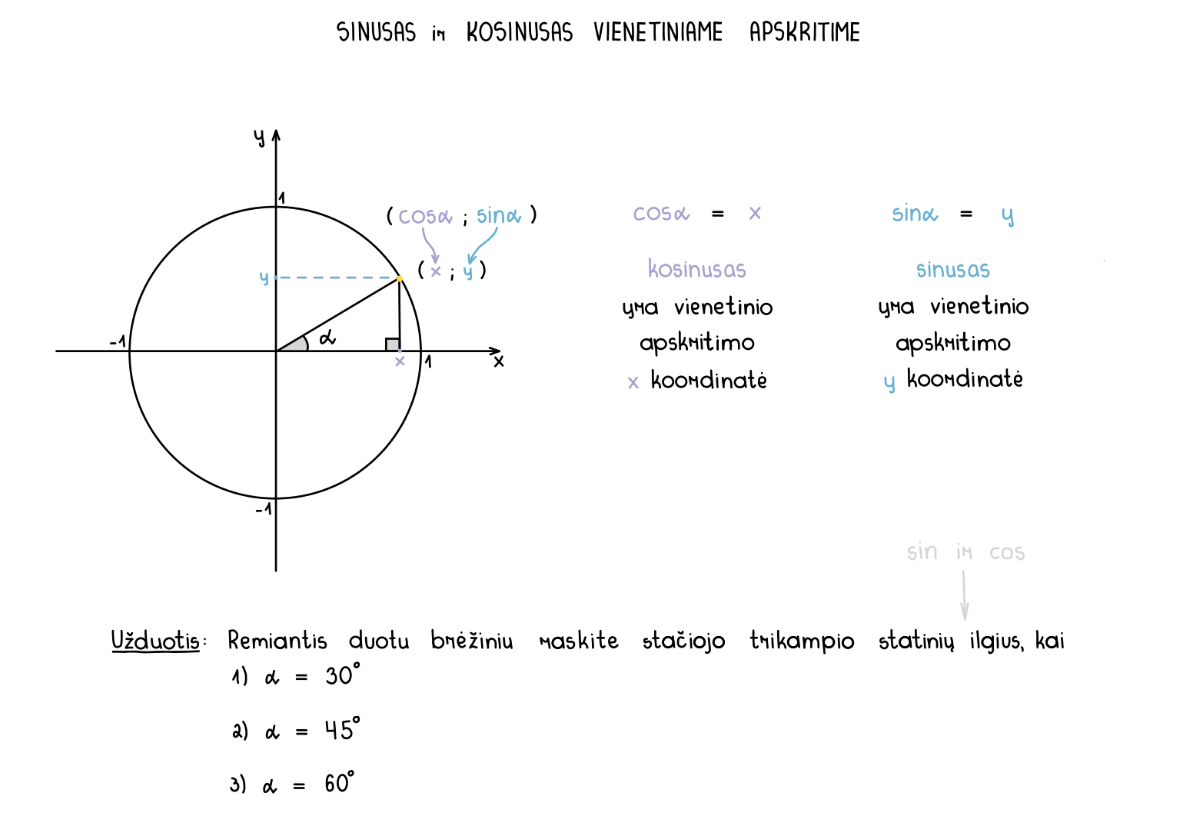 SINUSAS ir KOSINUSAS VIENETINIAME APSKRITIME
y
1
(cosα ; sinα)
(x ; y)
y
α
-1
x
1
x
-1
cosα = x
kosinusas
yra vienetinio
apskritimo
x koordinatė
sinα = y
sinusas
yra vienetinio
apskritimo
y koordinatė
sin ir cos
Užduotis: Remiantis duotu brėžiniu raskite stačiojo trikampio statinių ilgius, kai
1) α = 30°
2) α = 45°
3) α = 60°